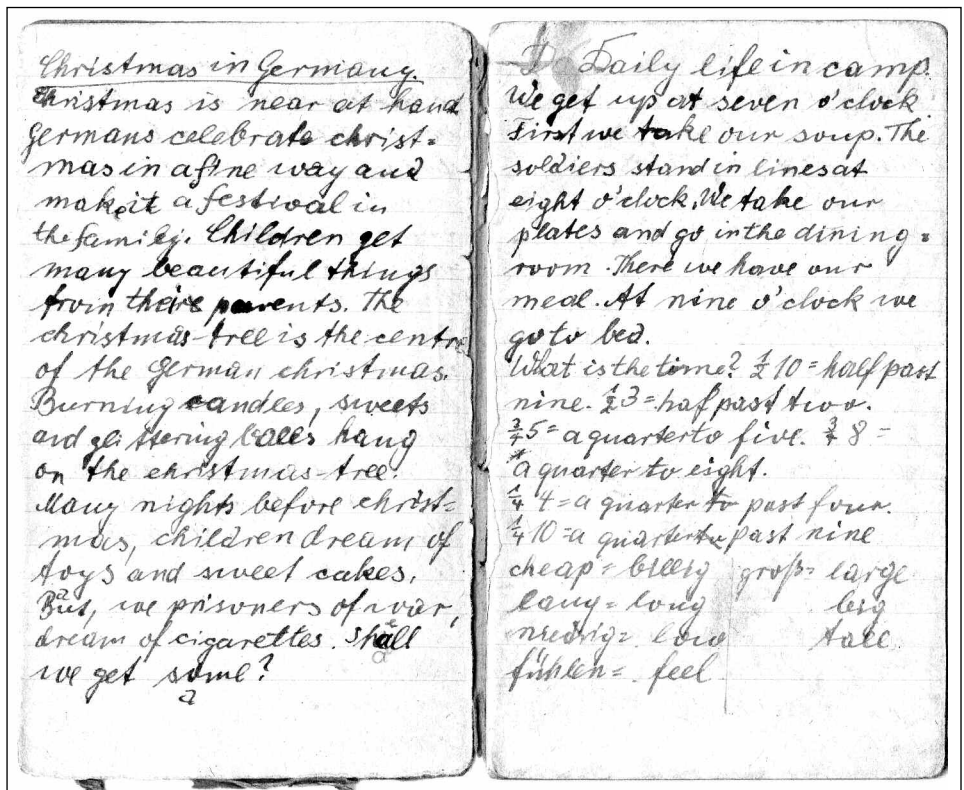 Christmas in Germany.
Christmas is near at hand
Germans celebrate christ=
mas in a fine way and
make it a festival in
the family. Children get
many beautiful things
from their parents. The
christmas-tree is the centre
of the German christmas.
Burning candles, sweets
and glittering balls hang
on the christmas-tree.
Many nights before christ=
mas, children dream of
toys and sweet cakes.
But, we prisoners of war,
dream of cigarettes. Shall
we get some?
a
Daily life in camp.
We get up at seven o'clock
First we take our soup. The
soldiers stand in lines at
eight o'clock. We take our
plates and go in the dining=
room. There we have our
meal. At nine o'clock we
go to bed.
What is the time? ½ 10 = half past
nine. ½ 3 = haf past two.
¾ 5 = a quarter to five. ¾ 8 =
a quarter to eight.
¼ 4 = a quarter to past four.
¼ 10 = a quarter to past nine
cheap = billig groß = large
lang = long big
niedrig = low tall
fühlen = feel